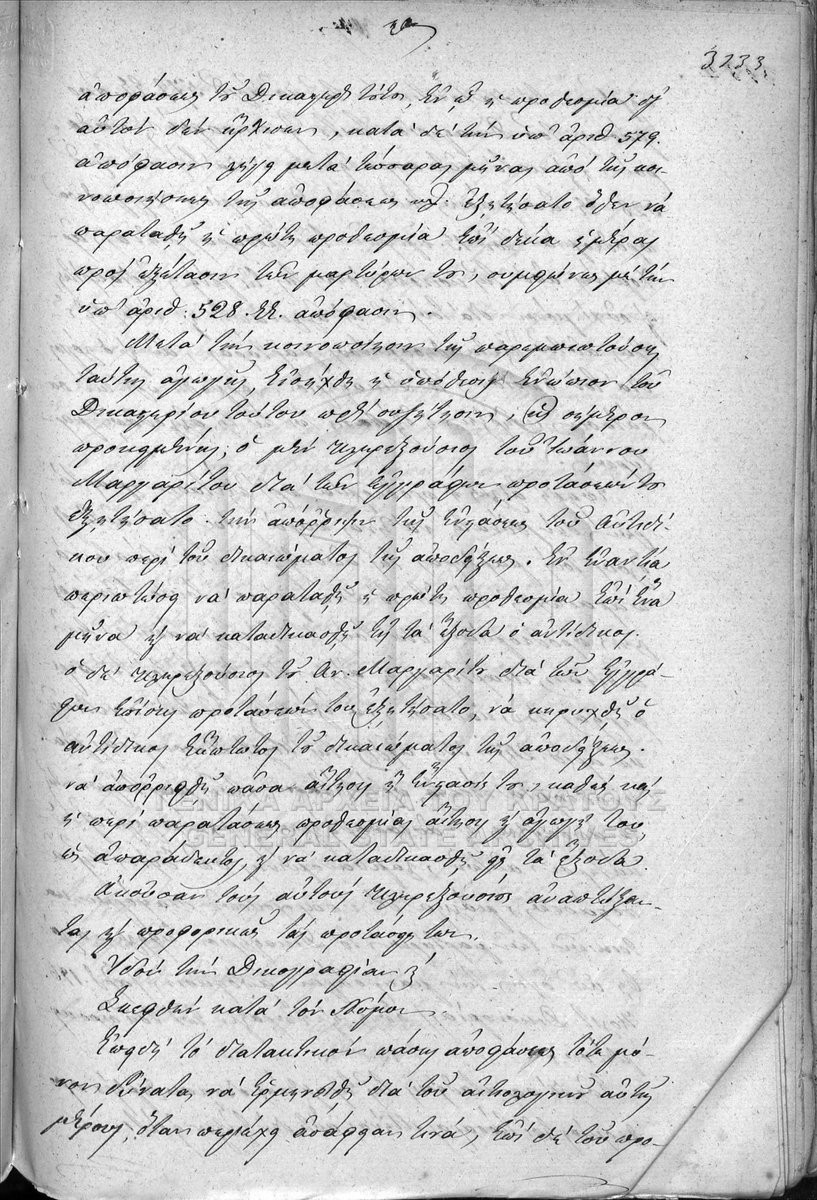 3233
ἀποφάσεως τοῦ Δικαστηρίου τούτου, ἐν ᾧ ἡ προθεσμία δι᾽
αὐτὸν δὲν ἤρχισεν, κατὰ δὲ τὴν ὑπ᾽ ἀριθ. 579.
ἀπόφασιν λήγῃ μετὰ τέσσαρας μῆνας ἀπὸ τῆς κοι-
νοποιήσεως τῆς ἀποφάσεως κλ. ἐξῃτήσατο ὅθεν νὰ
παραταθῇ ἡ πρώτη προθεσμία ἐπὶ δέκα ἡμέρας
πρὸς ἐξέτασιν τῶν μαρτύρων του, συμφώνως μὲ τὴν
ὑπ᾽ ἀριθ. 528. ἀπόφασιν.
Μετὰ τὴν κοινοποίησιν τῆς παρεμπιπτούσης
ταύτης ἀγωγῆς, εἰσήχθη ἡ ὑπόθεσις ἐνώπιον τοῦ
Δικαστηρίου τούτου πρὸς συζήτησιν, σήμερον
προκειμένης, ὁ μὲν πληρεξούσιος τοῦ Ἰωάννου
Μαργαρίτου διὰ τῶν ἐγγράφων προτάσεών του
ἐξῃτήσατο τὴν ἀπόρριψιν τῆς ἐνστάσεως τοῦ ἀντιδί-
κου περὶ τοῦ δικαιώματος τῆς ἀποδείξεως. ἐν ἐναντίᾳ
περιπτώσει νὰ παραταθῇ ἡ πρώτη προθεσμία ἐπὶ ἕνα
μῆνα καὶ νὰ καταδικασθῇ εἰς τὰ ἔξοδα ὁ ἀντίδικος.
ὁ δὲ πληρεξούσιος τοῦ Αν. Μαργαρίτου διὰ τῶν ἐγγρά-
φων ἐπίσης προτάσεών του ἐξῃτήσατο, νὰ κηρυχθῇ ὁ
ἀντίδικος ἔκπτωτος τοῦ δικαιώματος τῆς ἀποδείξεως.
νὰ ἀπορριφθῇ πᾶσα αἴτησις ἢ ἔνστασίς του, καθὼς καὶ
ἡ περὶ παρατάσεως προθεσμίας αἴτησις καὶ ἀγωγή του,
ὡς ἀπαράδεκτος, καὶ νὰ καταδικασθῇ εἰς τὰ ἔξοδα.
Ἀκοῦσαν τοὺς αὐτοὺς πληρεξουσίους ἀναπτύξαν-
τας καὶ προφορικῶς τὰς προτάσεις των.
Ἰδὸν τὴν Δικογραφίαν καὶ
Σκεφθὲν κατὰ τὸν Νόμον
Ἐπειδὴ τὸ διατακτικὸν πάσης ἀποφάσεως τότε μό-
νον δύναται νὰ ἑρμηνευθῇ διὰ τοῦ αἰτιολογικοῦ αὐτῆς
μέρους, ὅταν περιέχῃ ἀσάφειάν τινα, ἐπὶ δὲ τοῦ προ-
ΓΕΝΙΚΑ ΑΡΧΕΙΑ ΤΟΥ ΚΡΑΤΟΥΣ
GENERAL STATE ARCHIVES